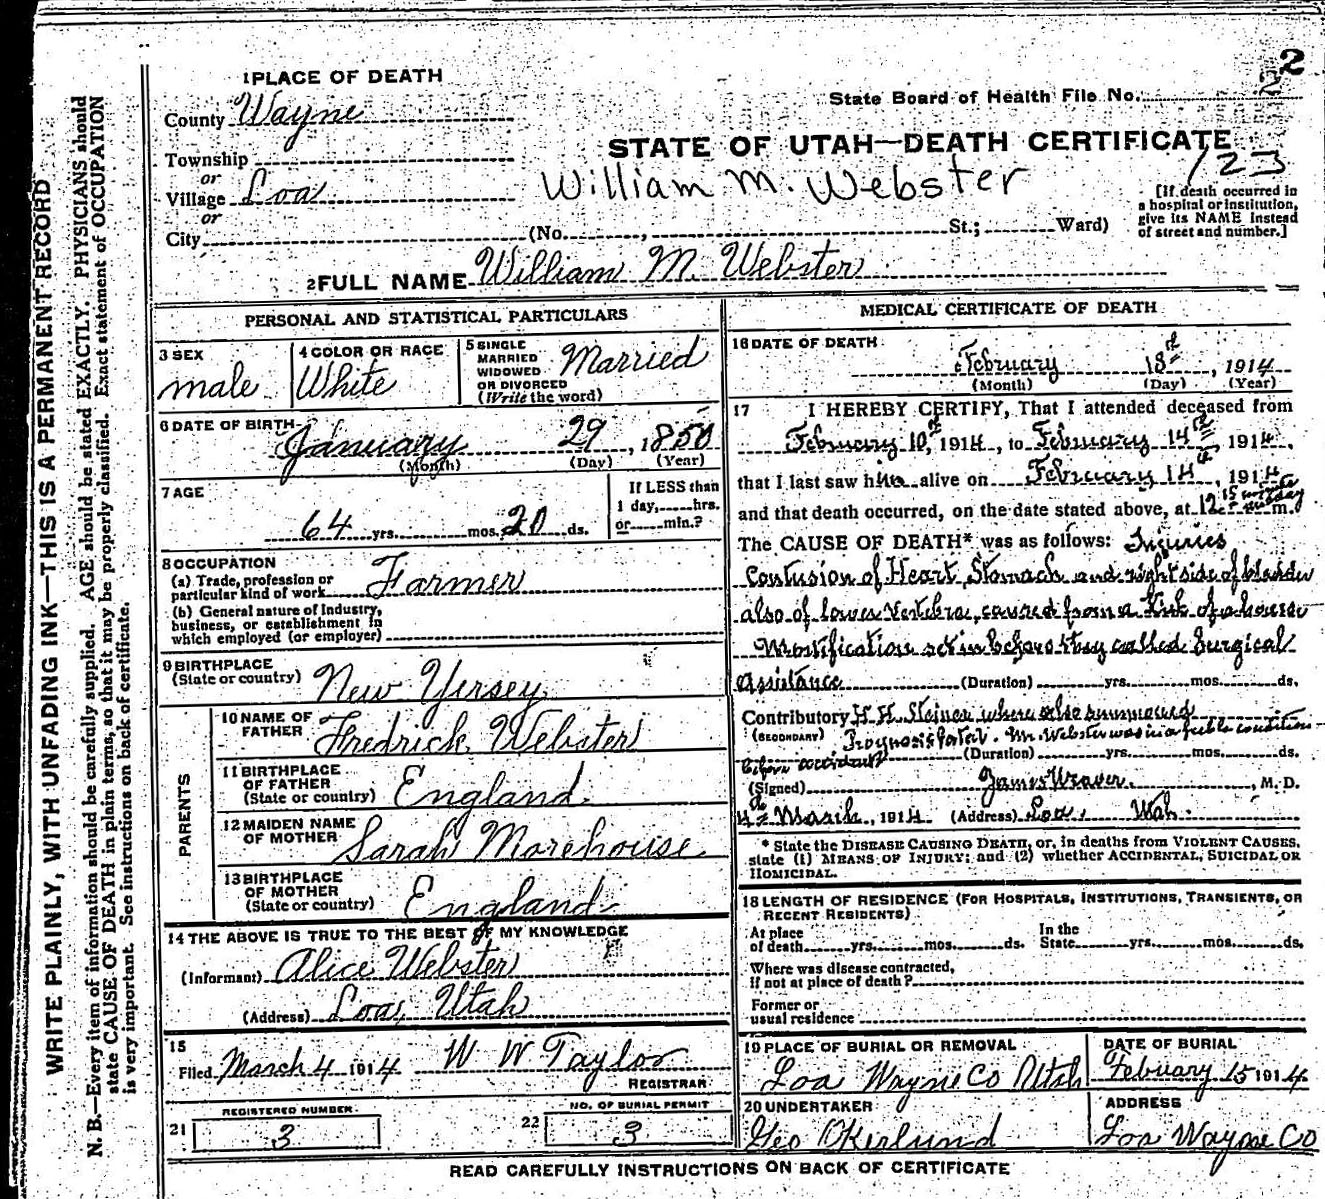 2
1 PLACE OF DEATH
State Board of Health File No. 2
County Wayne
STATE OF UTAH—DEATH CERTIFICATE
123
Township
or
William M. Webster
Village Loa
or
[If death occurred in a hospital or institution, give its NAME instead of street and number.]
City (No. , St.; Ward)
2 FULL NAME William M. Webster
PERSONAL AND STATISTICAL PARTICULARS
3 SEX male
4 COLOR OR RACE White
5 SINGLE MARRIED WIDOWED OR DIVORCED (Write the word) Married
6 DATE OF BIRTH January 29, 1850
(Month) (Day) (Year)
7 AGE
64 yrs. mos. 20 ds.
If LESS than 1 day, hrs. or min.?
8 OCCUPATION
(a) Trade, profession or particular kind of work Farmer
(b) General nature of Industry, business, or establishment in which employed (or employer)
9 BIRTHPLACE
(State or country) New Yersey
PARENTS
10 NAME OF FATHER Fredrick Webster
11 BIRTHPLACE OF FATHER (State or country) England
12 MAIDEN NAME OF MOTHER Sarah Morehouse
13 BIRTHPLACE OF MOTHER (State or country) England
14 THE ABOVE IS TRUE TO THE BEST OF MY KNOWLEDGE
(Informant) Alice Webster
(Address) Loa, Utah
15
Filed March 4 1914 W W Taylor
REGISTRAR
REGISTERED NUMBER
21 3
NO. OF BURIAL PERMIT
22 3
MEDICAL CERTIFICATE OF DEATH
16 DATE OF DEATH
February , 1914
(Month) (Day) (Year)
17 I HEREBY CERTIFY, That I attended deceased from
February 10th, 1914, to February 14th, 1914,
that I last saw him alive on February 14th, 1914
and that death occurred, on the date stated above, at 12 15 m.
The CAUSE OF DEATH* was as follows: Injuries
Contusion of Heart, Stomach and right side of bladder
also of lower vertebra, caused from a kick of a horse
Mortification set in before they called Surgical
assistance (Duration) yrs. mos. ds.
Contributory H. H. where also summoned
(SECONDARY) Prognosis fatal. Mr. Webster was in a feble condition
before accident (Duration) yrs. mos. ds.
(Signed) James Weaver, M. D.
4th March, 1914 (Address) Loa, Utah.
* State the DISEASE CAUSING DEATH, or, in deaths from VIOLENT CAUSES,
state (1) MEANS OF INJURY; and (2) whether ACCIDENTAL, SUICIDAL OR
HOMICIDAL.
18 LENGTH OF RESIDENCE (FOR HOSPITALS, INSTITUTIONS, TRANSIENTS, OR
RECENT RESIDENTS)
At place of death yrs. mos. ds. In the State yrs. mos. ds.
Where was disease contracted,
if not at place of death?
Former or
usual residence
19 PLACE OF BURIAL OR REMOVAL
Loa Wayne Co Utah
DATE OF BURIAL
February 15 1914
20 UNDERTAKER
Geo Okerlund
ADDRESS
Loa Wayne Co
READ CAREFULLY INSTRUCTIONS ON BACK OF CERTIFICATE
WRITE PLAINLY, WITH UNFADING INK—THIS IS A PERMANENT RECORD
N. B.—Every item of information should be carefully supplied. AGE should be stated EXACTLY. PHYSICIANS should
state CAUSE OF DEATH in plain terms, so that it may be properly classified. Exact statement of OCCUPATION
is very important. See instructions on back of certificate.